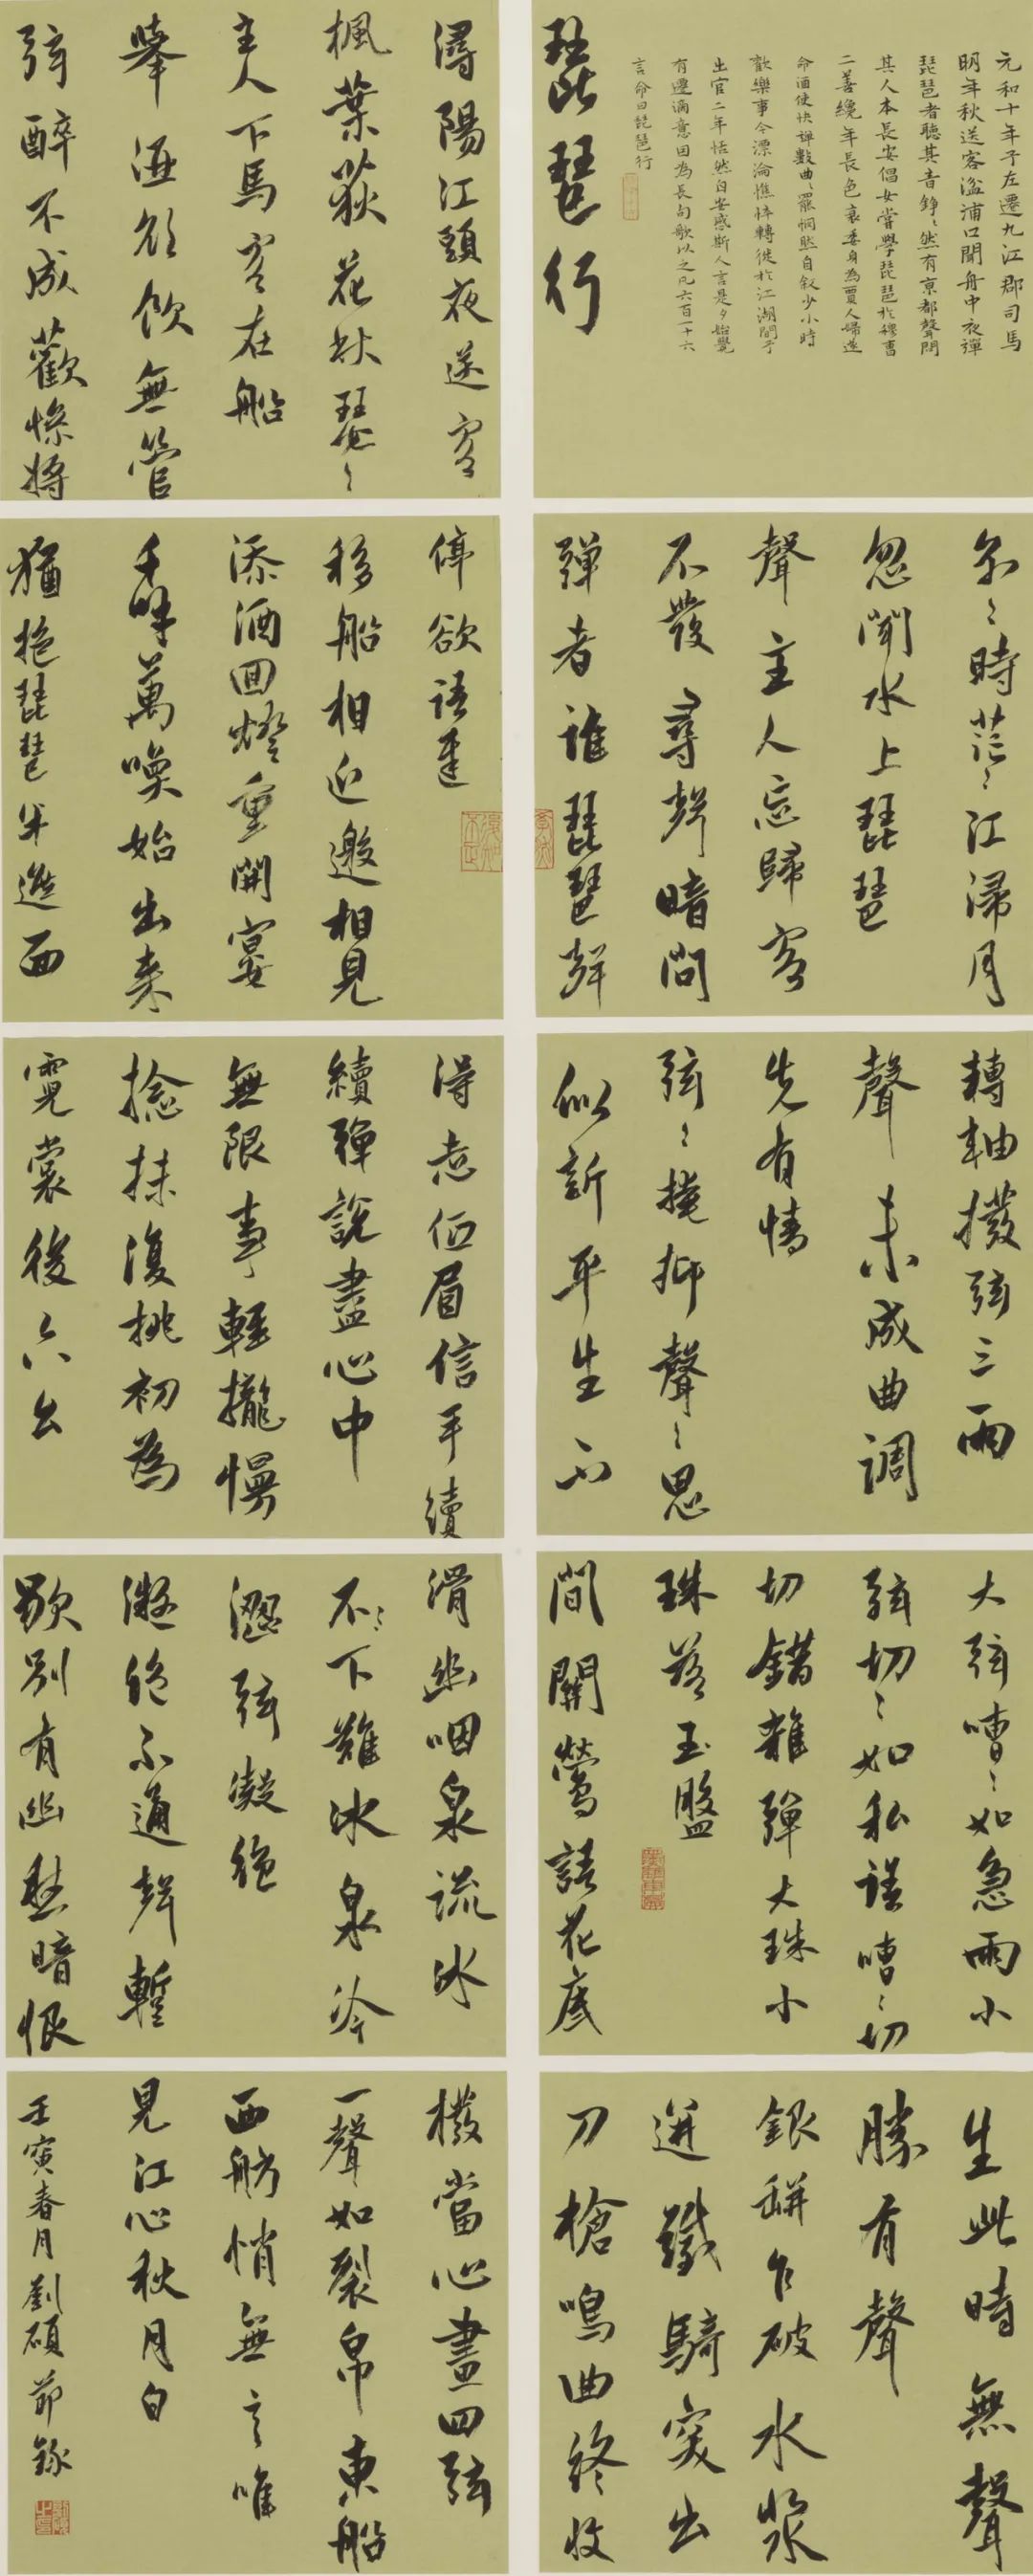 元和十年予左遷九江郡司馬
明年秋送客湓浦口聞舟中夜彈
琵琶者聽其音錚々然有京都聲問
其人本長安倡女嘗學琵琶於穆曹
二善纔年長色衰委身為賈人婦遂
命酒使快彈數曲々罷憫然自敘少小時
歡樂事今漂淪憔悴轉徙於江湖間予
出官二年恬然自安感斯人言是夕始覺
有遷謫意因為長句歌以之凡六百一十六
言命曰琵琶行
琵琶行
潯陽江頭夜送客
楓葉荻花秋瑟々
主人下馬客在船
舉酒欲飲無管
弦醉不成歡慘將
別々時茫々江浸月
忽聞水上琵琶
聲主人忘歸客
不發尋聲暗問
彈者誰琵琶聲
停欲語遲
移船相近邀相見
添酒回燈重開宴
千呼萬喚始出來
猶抱琵琶半遮面
轉軸撥弦三兩
聲未成曲調
先有情
弦々掩抑聲々思
似訴平生不
得志低眉信手續
續彈說盡心中
無限事輕攏慢
撚抹復挑初為
霓裳後六幺
大弦嘈々如急雨小
弦切々如私語嘈々切
切錯雜彈大珠小
珠落玉盤
間關鶯語花底
滑幽咽泉流冰
不々下難冰泉冷
澀弦凝絕
凝絕不通聲暫
歇別有幽愁暗恨
生此時無聲
勝有聲
銀瓶乍破水漿
迸鐵騎突出
刀槍鳴曲終收
撥當心畫四弦
一聲如裂帛東船
西舫悄無言唯
見江心秋月白
壬寅春月劉碩節錄